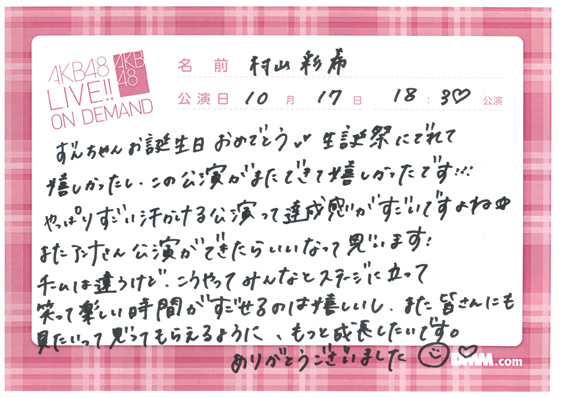 AKB48
LIVE!!
ON DEMAND
AKB
48
名前 村山彩希
公演日 10月 17日 18:30公演
ずんちゃんお誕生日おめでとう 生誕祭にでれて
嬉しかったし、この公演がまたできて嬉しかったです!!!
やっぱりすごい汗かける公演って達成感がすごいですよね
また公演ができたらいいなって思います!
チームは違うけど、こうやってみんなとステージに立って
笑って楽しい時間がすごせるのは嬉しいし、また皆さんにも
見たいって思ってもらえるように、もっと成長したいです。
ありがとうございました
DMM.com